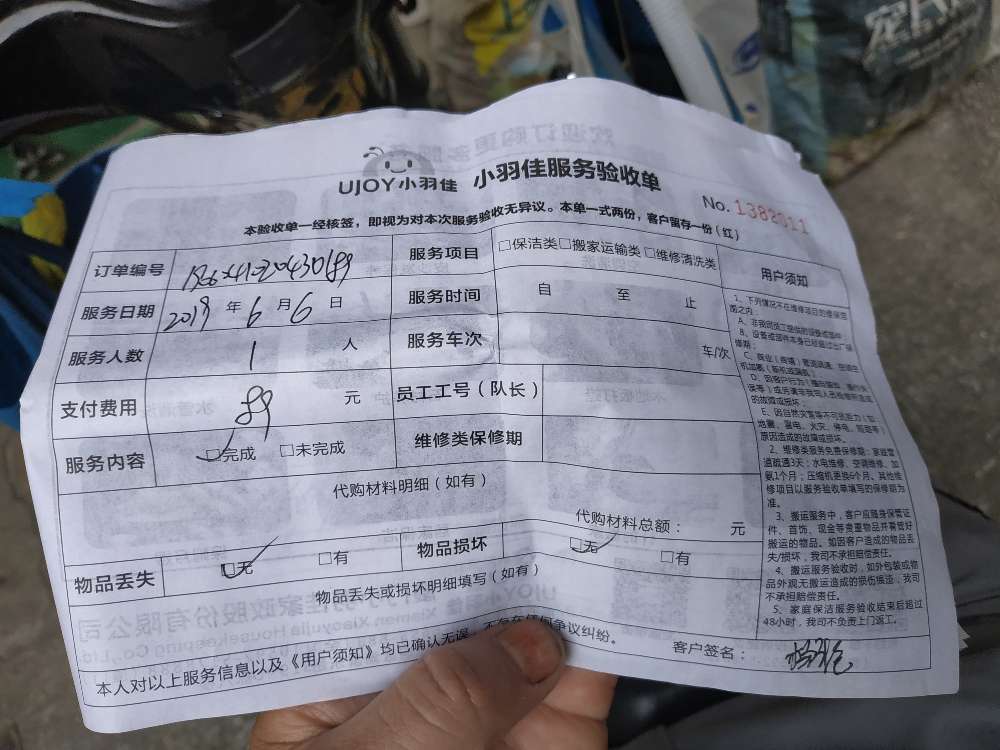 UJOY小羽佳 小羽佳服务验收单
No. 1382011
本验收单一经核签，即视为对本次服务验收无异议。本单一式两份，客户留存一份（红）
订单编号 服务项目 □保洁类□搬家运输类□维修清洗类
服务日期 2019 年 6 月 6 日 服务时间 自 至 止
服务人数 1 人 服务车次 车/次
支付费用 89 元 员工工号（队长）
服务内容 □完成 □未完成 维修类保修期
代购材料明细（如有）
代购材料总额： 元
物品丢失 □无 □有 物品损坏 □无 □有
物品丢失或损坏明细填写（如有）
本人对以上服务信息以及《用户须知》均已确认无误，不存在任何争议纠纷。
客户签名：
用户须知
1、下列情况不在维修项目的维保范
围之内：
A、非我司员工提供的设备或部件
E、因自然灾害等不可抗能力（如
地震、雷电、火灾、停电、
原因造成的故障或损坏。
2、维修类服务免费保修期：家庭管
道疏通3天；水电维修、空调维修、加
氨1个月；压缩机更换6个月。其他维
修项目以服务验收单填写的保修期为
准。
3、搬运服务中，客户应随身保管证
件、首饰、现金等贵重物品并看管好
搬运的物品。如因客户造成的物品丢
失/损坏，我司不承担赔偿责任。
4、搬运服务验收时，如外包装或物
品外观无搬运造成的损伤痕迹，我司
不承担赔偿责任。
5、家庭保洁服务验收结束后超过
48小时，我司不负责上门返工。